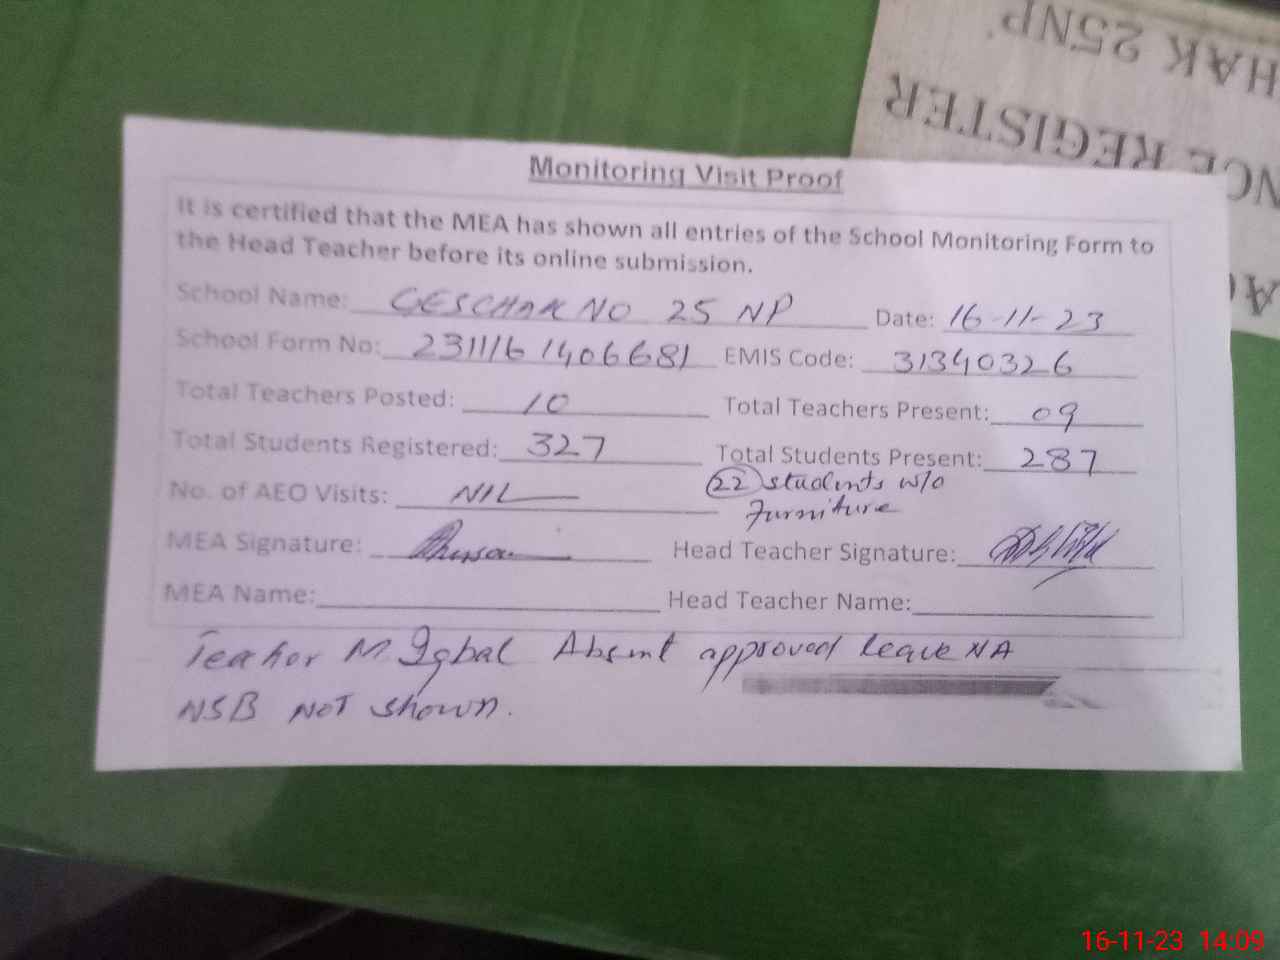 HAK 25NP.
NCE REGISTER
Monitoring Visit Proof
It is certified that the MEA has shown all entries of the School Monitoring Form to
the Head Teacher before its online submission.
School Name: GESCHAK NO 25 NP Date: 16-11-23
School Form No: 231116 1406681 EMIS Code: 31340326
Total Teachers Posted: 10 Total Teachers Present: 09
Total Students Registered: 327 Total Students Present: 287
No. of AEO Visits: NIL 22 students w/o
Furniture
MEA Signature: Head Teacher Signature:
MEA Name: Head Teacher Name:
Teacher M. Iqbal Absent approved leave NA
NSB NOT shown.
16-11-23 14:09